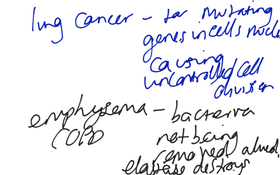 lung cancer - tar mutating
genes in cells nucle
causing
uncontrolled cell
division
emphysema - bacteria
COPD
not being
removed
elastase destroys